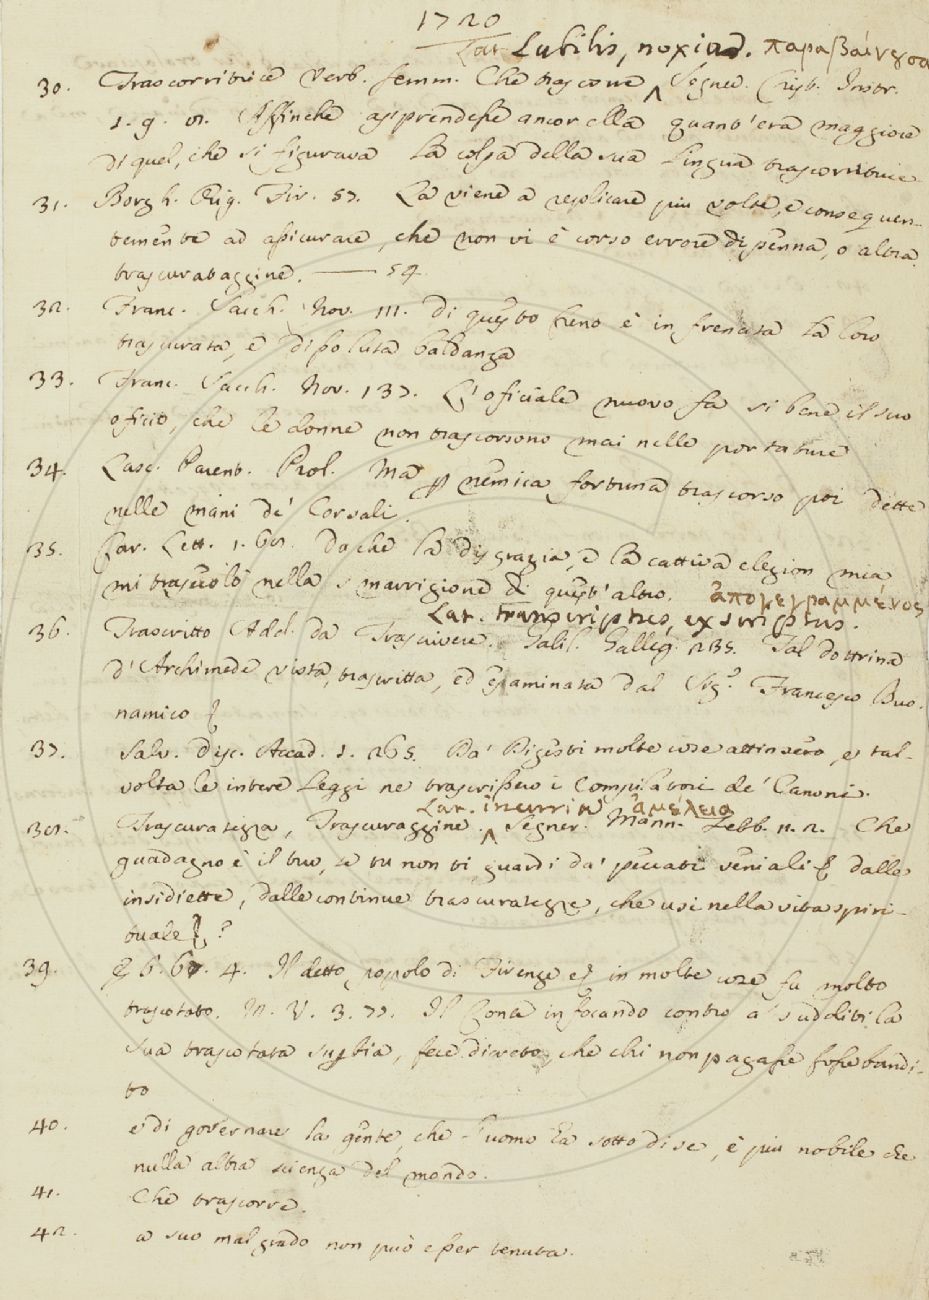 1720
Lat. Lubilis, noxia. παραβαίνουσα
30. Trascorritrice Verb. femm. Che trascorre Segner. Crist. Instr.
1. 9. 8. Affinchè apprendesse ancor ella quant'era maggiore
di quel, che si figurava la colpa della sua lingua trascorritrice
31. Borgh. Rig. Fir. 57. La viene a replicare piu volte, e conseguen-
temente ad assicurare, che non vi è corso errore di penna, o altra
trascurataggine. —— 54
32. Franc. Sacch. Nov. 111. di questo freno è infrenata la loro
trascurata, e dissoluta baldanza
33. Franc. Sacch. Nov. 137. L'oficiale nuovo fa si bene il suo
oficio, che le donne non trascorsono mai nelle portature
34. Lasc. Parent. Prol. Ma p nemica fortuna trascorso poi dette
nelle mani de' Corsali.
35. Car. Lett. 1. 68. Da che la disgrazia, e la cattiva elezion mia
mi trascolò nella smarrigione di quest'altro. ἀπογεγραμμένος
Lat. transcriptus, exscriptus.
36. Trascritto Add. da Trascrivere. Galil. Galleg. 235. Tal dottrina
d'Archimede vista, trascritta, ed esaminata dal Sig.r Francesco Buo-
namico
37. Salv. Disc. Accad. 1. 265. Da' Digesti molte cose attinsero, e tal-
volta le intere Leggi ne trascrissero i Compilatori de' Canoni.
Lat. incuria ἀμέλεια
38. Trascuratezza, Trascuraggine. Segner. Mann. Febb. 11. 2. Che
guadagno è il tuo, se tu non ti guardi da' peccati veniali dalle
insidiette, dalle continue trascuratezze, che usi nella vita spiri-
tuale ?
39. G. 6. 67. 4. Il detto popolo di Firenze in molte cose fu molto
trascotato. M. V. 3. 77. Il Conte infocando contro a' sudditi la
sua trascotata supbia, fece divieto, che chi non pagasse fosse bandi-
to
40. e di governare la gente, che l'uomo ha sotto di se, è piu nobile che
nulla altra scienza del mondo.
41. Che trascorre.
42. a suo mal grado non può esser tenuta.